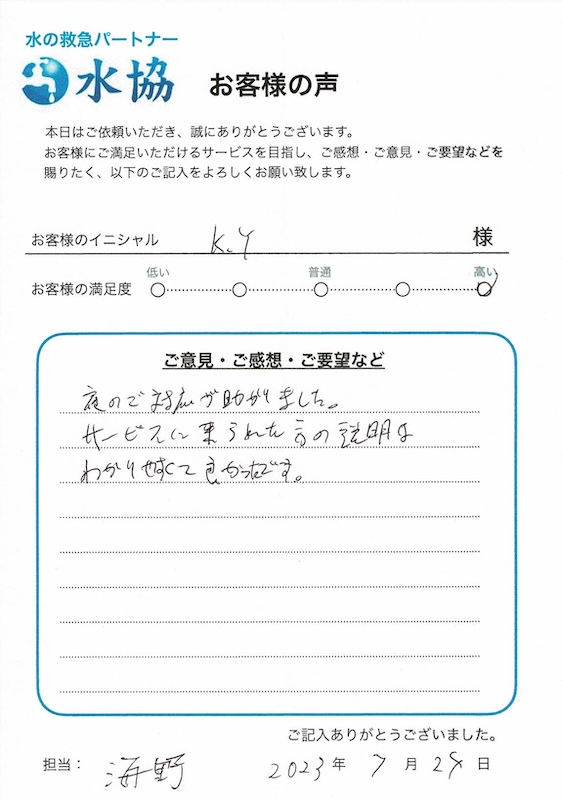 水の救急パートナー
水協 お客様の声
本日はご依頼いただき、誠にありがとうございます。
お客様にご満足いただけるサービスを目指し、ご感想・ご意見・ご要望などを
賜りたく、以下のご記入をよろしくお願い致します。
お客様のイニシャル K.Y 様
低い 普通 高い
お客様の満足度
ご意見・ご感想・ご要望など
夜のご対応が助かりました。
サービスに来られた方の説明は
わかりやすくて良かったです。
ご記入ありがとうございました。
担当: 海野 2023年 7月 28日